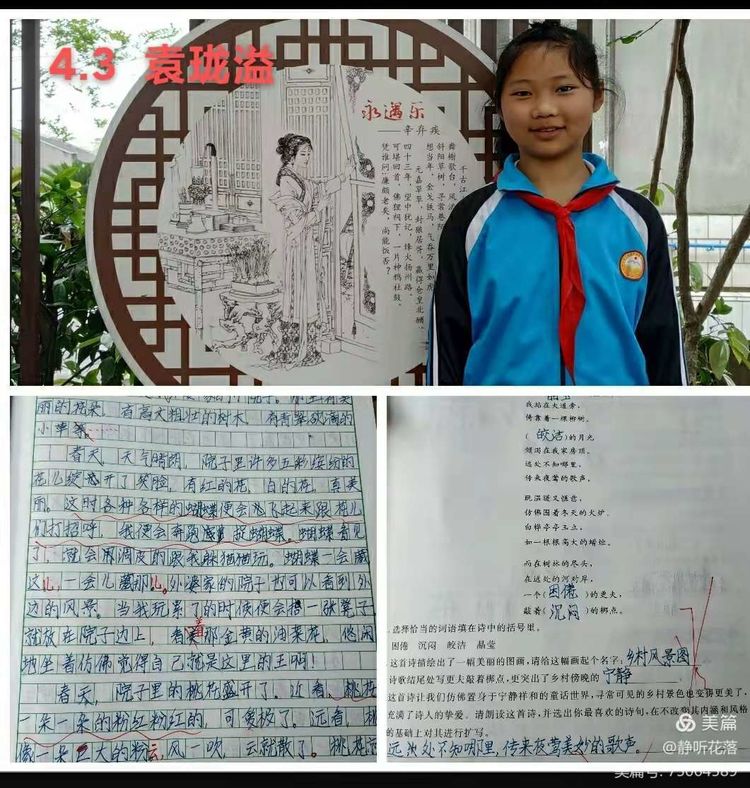 4.3 袁珑溢
永遇乐
——辛弃疾
千古江
舞榭歌台，风流
斜阳草树，寻常巷陌
想当年，金戈铁马，气吞万里如虎
元嘉草草，封狼居胥，赢得仓皇北顾。
四十三年，望中犹记，烽火扬州路。
可堪回首，佛狸祠下，一片神鸦社鼓。
凭谁问：廉颇老矣，尚能饭否？
丽的花朵，有高大粗壮的树木，有青翠欲滴的
小草等……
春天，天气晴朗，院子里许多五彩缤纷的
花儿绽开了笑脸，有红的花，白的花，真美
丽。这时各种各样的蝴蝶便会飞起来跟花儿
们打招呼，我便会奔跑着捉蝴蝶。蝴蝶看见
了，就会用调皮的跟我躲猫猫玩。蝴蝶一会藏
这儿，一会儿藏那儿。外婆家的院子也可以看到外
边的风景。当我玩累了的时候便会搭一张凳子
就放在院子边上，看着那金黄的油菜花，悠闲
地坐着仿佛觉得自己就是这里的王啊！
春天，院子里的桃花盛开了。近看，桃花
一朵一朵的粉红粉红的，可美极了。远看，桃
像一朵巨大的粉云，风一吹，云就散了。桃花
我站在大道旁，
倚靠着一棵柳树。
（皎洁）的月光
倾泻在我家房顶。
远处不知哪里，
传来夜莺的歌声。
既温暖又惬意，
仿佛围着冬天的火炉。
白桦亭亭玉立，
如一根根高大的蜡烛。
而在树林的尽头，
在远处的河对岸，
一个（困倦）的更夫，
敲着（沉闷）的梆点。
.选择恰当的词语填在诗中的括号里。
困倦 沉闷 皎洁 晶莹
这首诗描绘出了一幅美丽的图画，请给这幅画起个名字：乡村风景图
诗歌结尾处写更夫敲着梆点，更突出了乡村傍晚的宁静
这首诗让我们仿佛置身于宁静祥和的童话世界，寻常可见的乡村景色也变得更美了，
充满了诗人的挚爱。请朗读这首诗，并选出你最喜欢的诗句，在不改变其内涵和风格
的基础上对其进行扩写。
远处不知哪里，传来夜莺美妙的歌声。
美篇
@静听花落
美篇号: 73604589